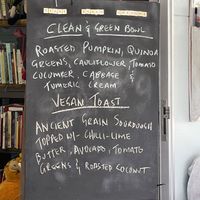 CLEAN & GREEN BOWL
ROASTED PUMPKIN, QUINOA
GREENS, CAULIFLOWER, TOMATO
CUCUMBER, CABBAGE &
TUMERIC CREAM
VEGAN TOAST
ANCIENT GRAIN SOURDOUGH
TOPPED W/- CHILLI-LIME
BUTTER, AVOCADO, TOMATO
GREENS & ROASTED COCONUT